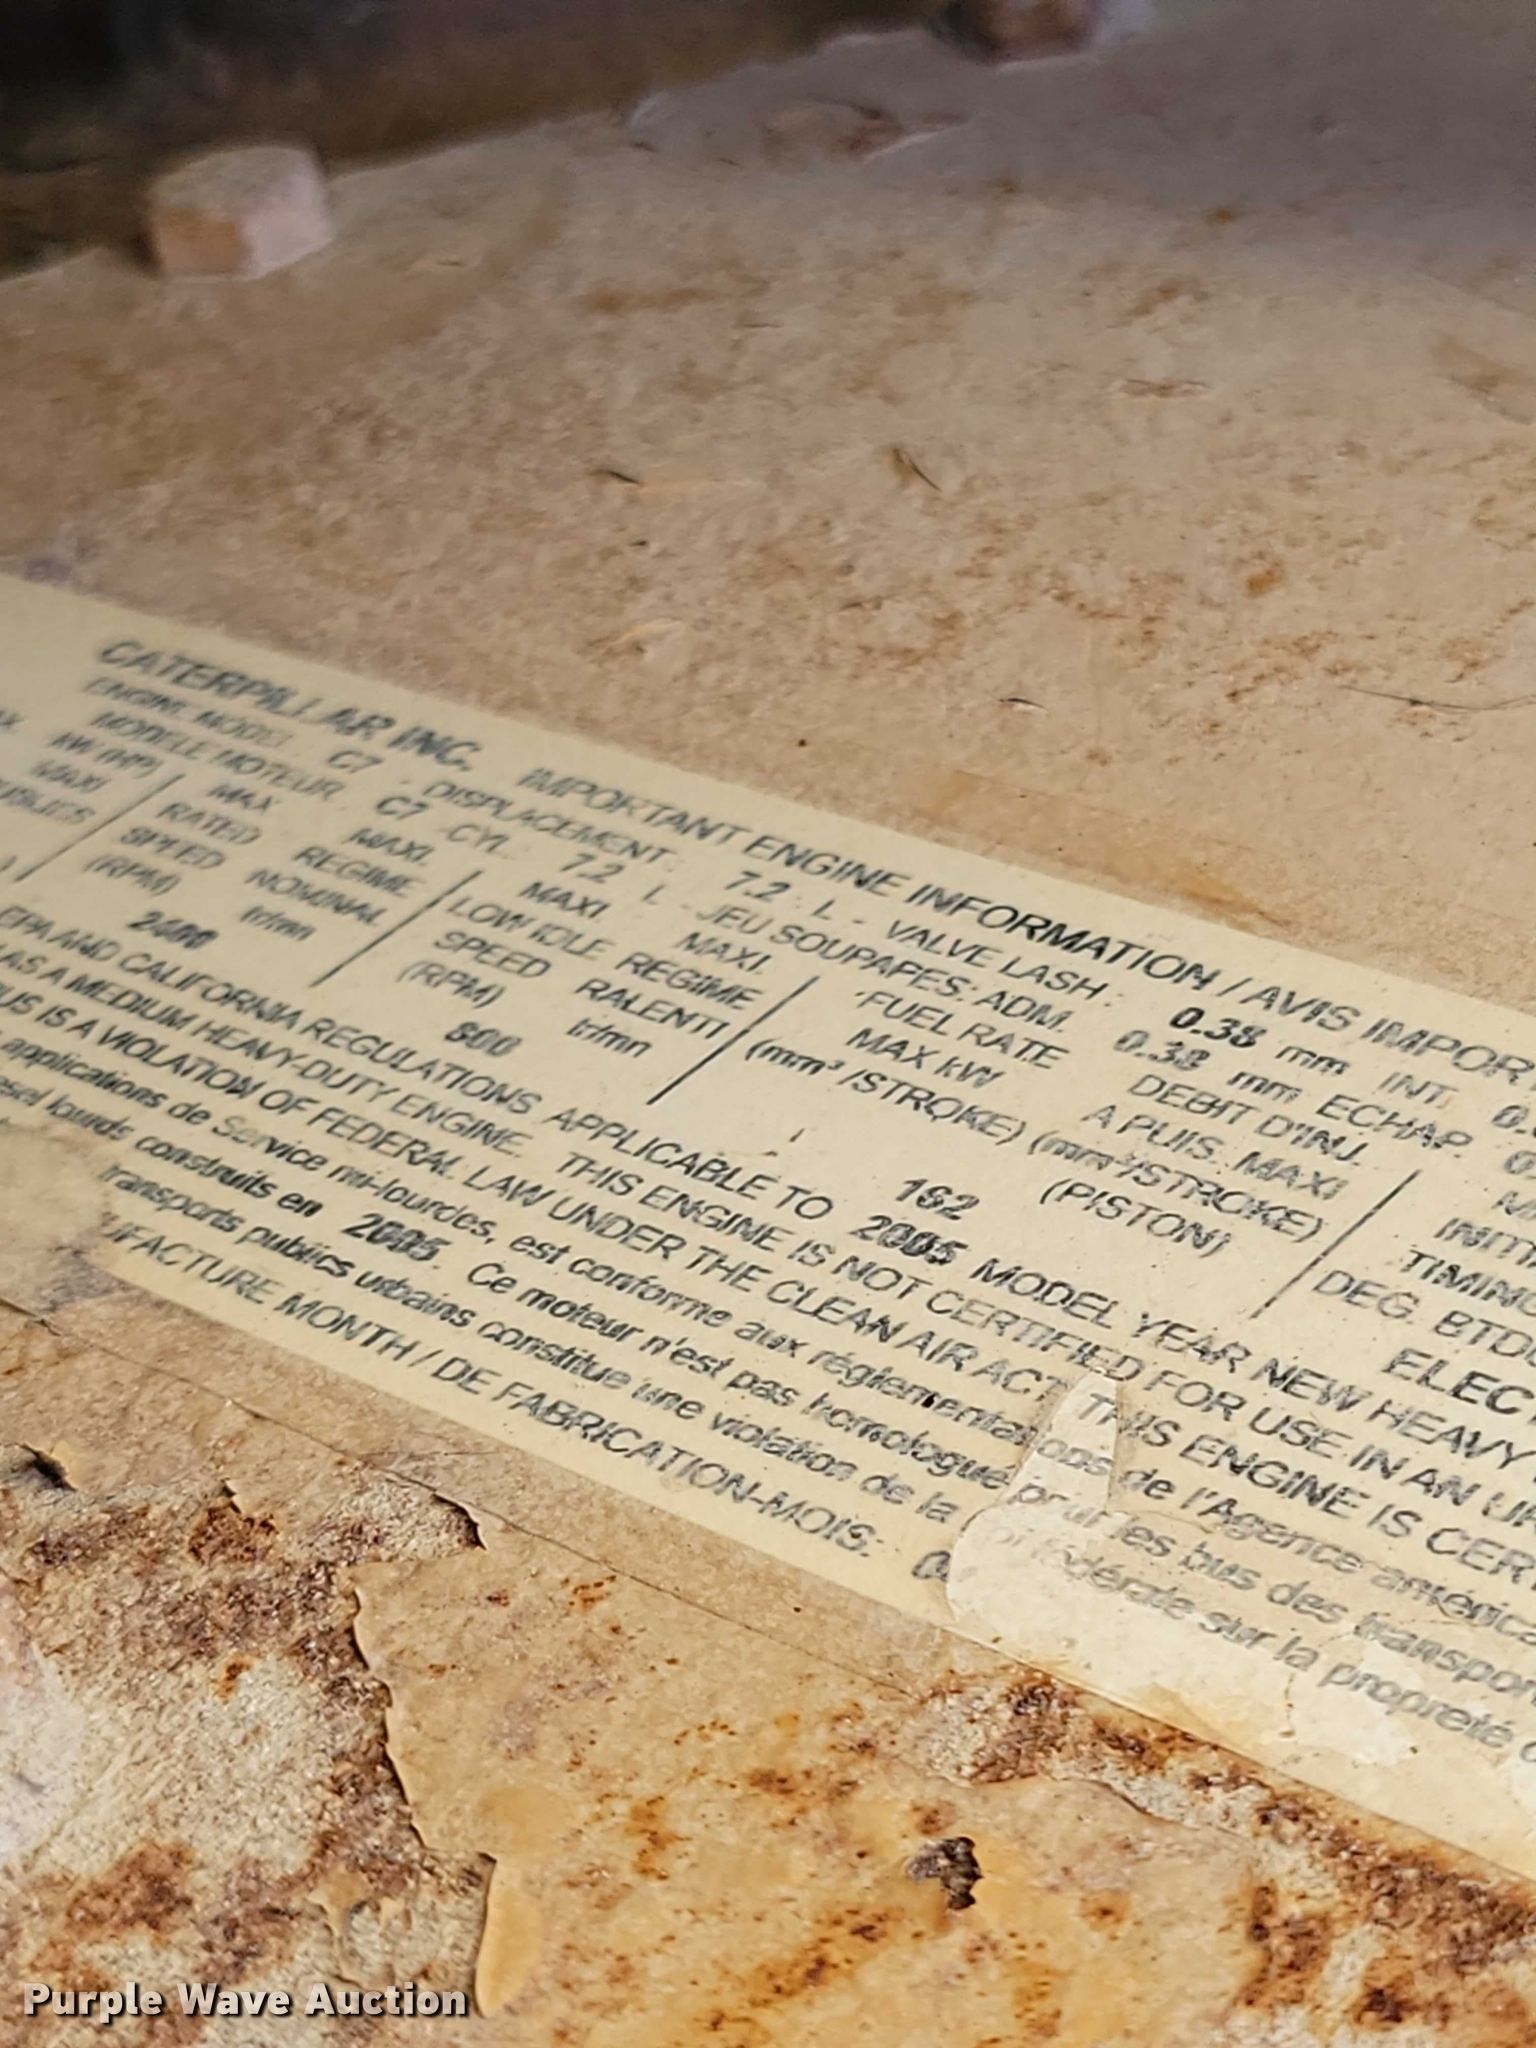 CATERPILLAR INC. IMPORTANT ENGINE INFORMATION / AVIS IMPOR
ENGINE MODEL C7 - DISPLACEMENT: 7.2 L - VALVE LASH : 0.38 mm INT. 0.
MODELE MOTEUR C7 -CYL. 7.2 L - JEU SOUPAPES: ADM. 0.38 mm ECHAP.
kW (HP) MAX MAXI. MAXI MAXI. FUEL RATE DEBIT D'INJ.
MAXI RATED REGIME LOW IDLE REGIME MAX kW A PUIS. MAXI INITI
SPEED NOMINAL SPEED RALENTI (mm³/STROKE) (mm³/STROKE) TIMING
(RPM) tr/mn (RPM) tr/mn (PISTON) DEG. BTD
2400 800 162 ELEC
EPA AND CALIFORNIA REGULATIONS APPLICABLE TO 2005 MODEL YEAR NEW HEAVY
AS A MEDIUM HEAVY-DUTY ENGINE. THIS ENGINE IS NOT CERTIFIED FOR USE IN AN UR
US IS A VIOLATION OF FEDERAL LAW UNDER THE CLEAN AIR ACT. THIS ENGINE IS CERT
applications de Service mi-lourdes, est conforme aux réglementations de l'Agence américa
esel lourds construits en 2005. Ce moteur n'est pas homologue pour les bus des transpor
transports publics urbains constitue une violation de la loi fédérale sur la propreté
UFACTURE MONTH / DE FABRICATION-MOIS: 0
Purple Wave Auction